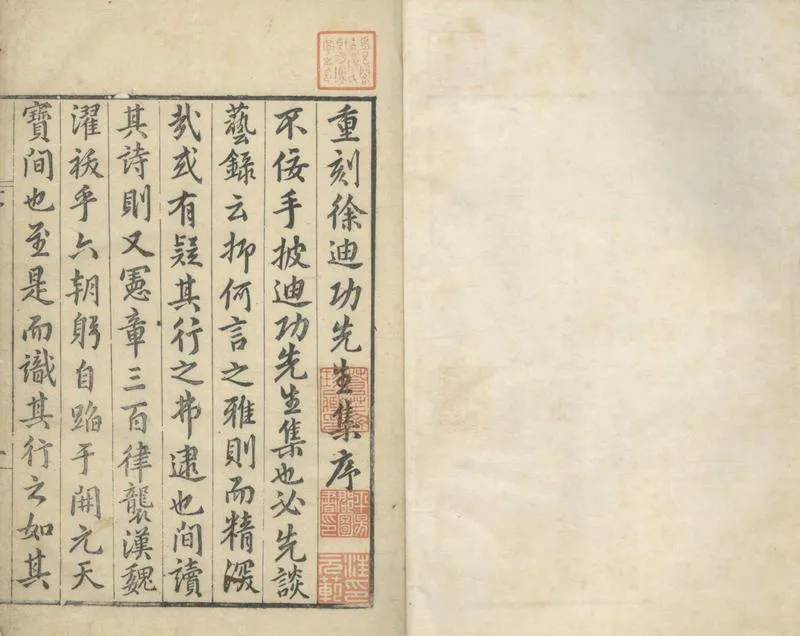 重刻徐迪功先生集序
不佞手披迪功先生集也必先談
藝錄云抑何言之雅則而精深
哉或有疑其行之弗逮也間讀
其詩則又憲章三百律襲漢魏
濯祓乎六朝躬自蹈于開元天
寶間也至是而識其行之如其